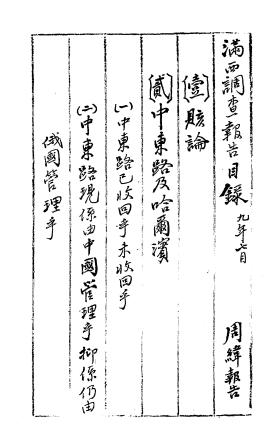 滿西調查報告目錄 九年七月 周緯報告
〔壹〕賅論
〔貳〕中東路及哈爾濱
(一)中東路已收回乎未收回乎
(二)中東路現係由中國管理乎抑係仍由
俄國管理乎